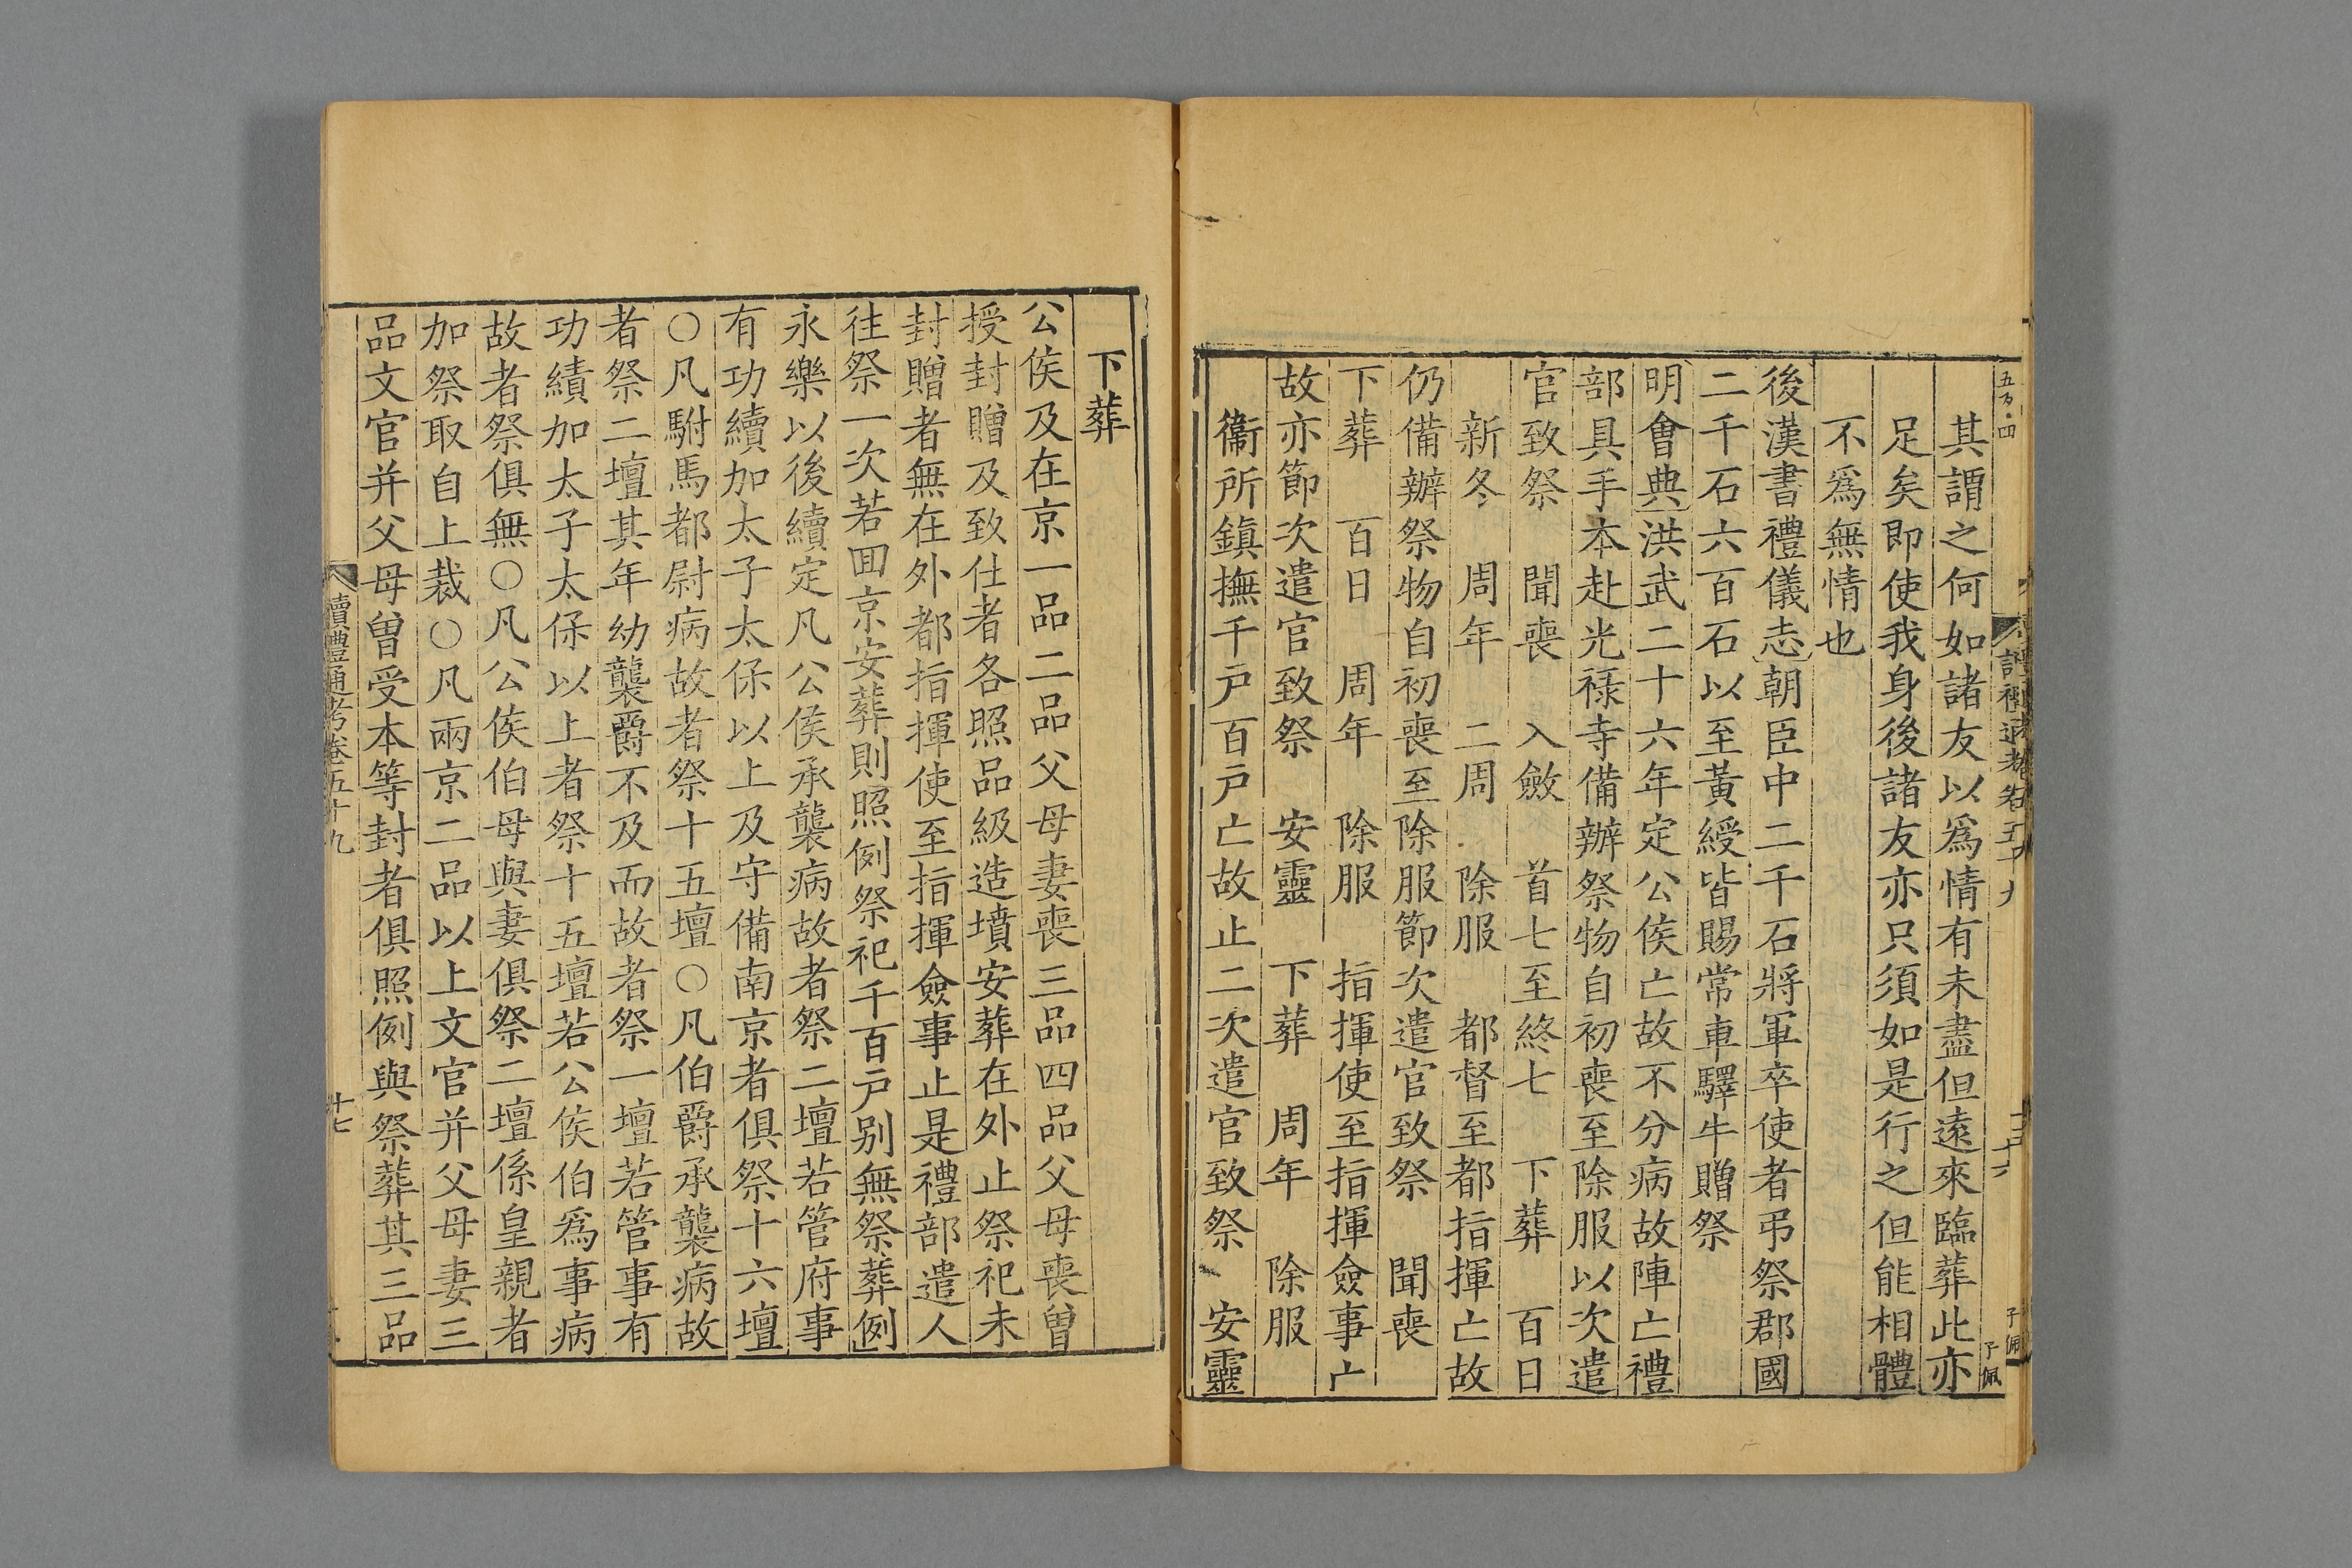 其謂之何如諸友以爲情有未盡但遠來臨葬此亦
足矣即使我身後諸友亦只須如是行之但能相體
不爲無情也
後漢書禮儀志朝臣中二千石將軍卒使者弔祭郡國
二千石六百石以至黃綬皆賜常車驛牛贈祭
明會典洪武二十六年定公侯亡故不分病故陣亡禮
部具手本赴光祿寺備辦祭物自初喪至除服以次遣
官致祭　聞喪　入斂　首七至終七　下葬　百日
新冬　周年　二周　除服　都督至都指揮亡故
仍備辦祭物自初喪至除服節次遣官致祭　聞喪
下葬　百日　周年　除服　指揮使至指揮僉事亡
故亦節次遣官致祭　安靈　下葬　周年　除服
衞所鎮撫千戸百戸亡故止二次遣官致祭　安靈
下葬
公侯及在京一品二品父母妻喪三品四品父母喪曽
授封贈及致仕者各照品級造墳安葬在外止祭祀未
封贈者無在外都指揮使至指揮僉事止是禮部遣人
往祭一次若囬京安葬則照例祭祀千百戸别無祭葬例
永樂以後續定凡公侯承襲病故者祭二壇若管府事
有功續加太子太保以上及守備南京者俱祭十六壇
〇凡駙馬都尉病故者祭十五壇〇凡伯爵承襲病故
者祭二壇其年幼襲爵不及而故者祭一壇若管事有
功績加太子太保以上者祭十五壇若公侯伯爲事病
故者祭俱無〇凡公侯伯母與妻俱祭二壇係皇親者
加祭取自上裁〇凡兩京二品以上文官并父母妻三
品文官并父母曽受本等封者俱照例與祭葬其三品
讀禮通考卷五十九
十七